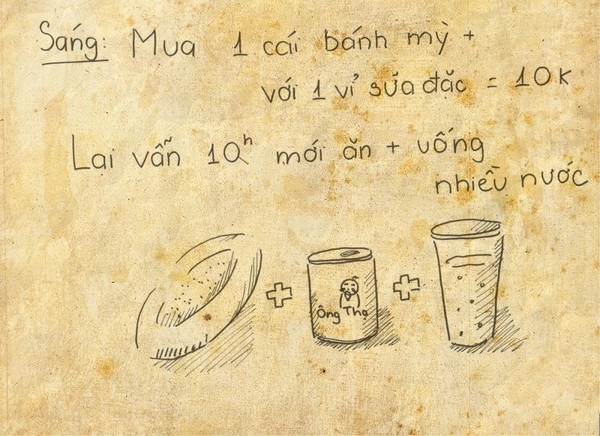 Sáng: Mua 1 cái bánh mỳ +
với 1 vỉ sữa đặc = 10k
Lại vẫn 10h mới ăn + uống
nhiều nước
Ông Thọ